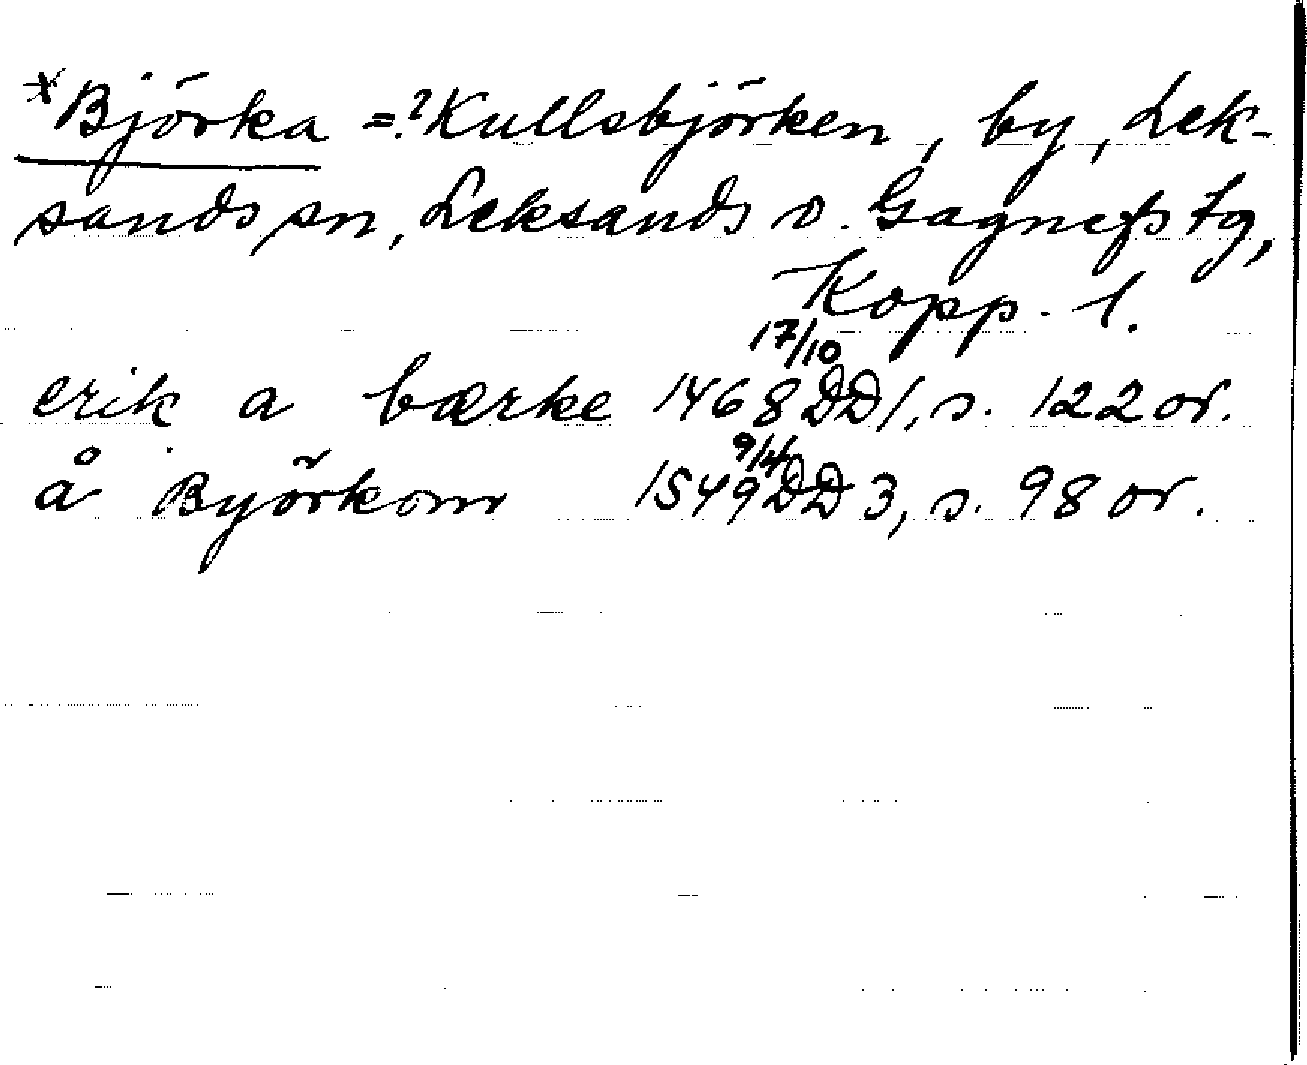 *Björka =? Kullsbjörken, by, Lek-
sands sn, Leksands o. Gagnefs tg,
Kopp. l.
erik a bærke 17/10 1468 DD 1, s. 122 or.
å Byőrkom 9/4 1549 DD 3, s. 98 or.